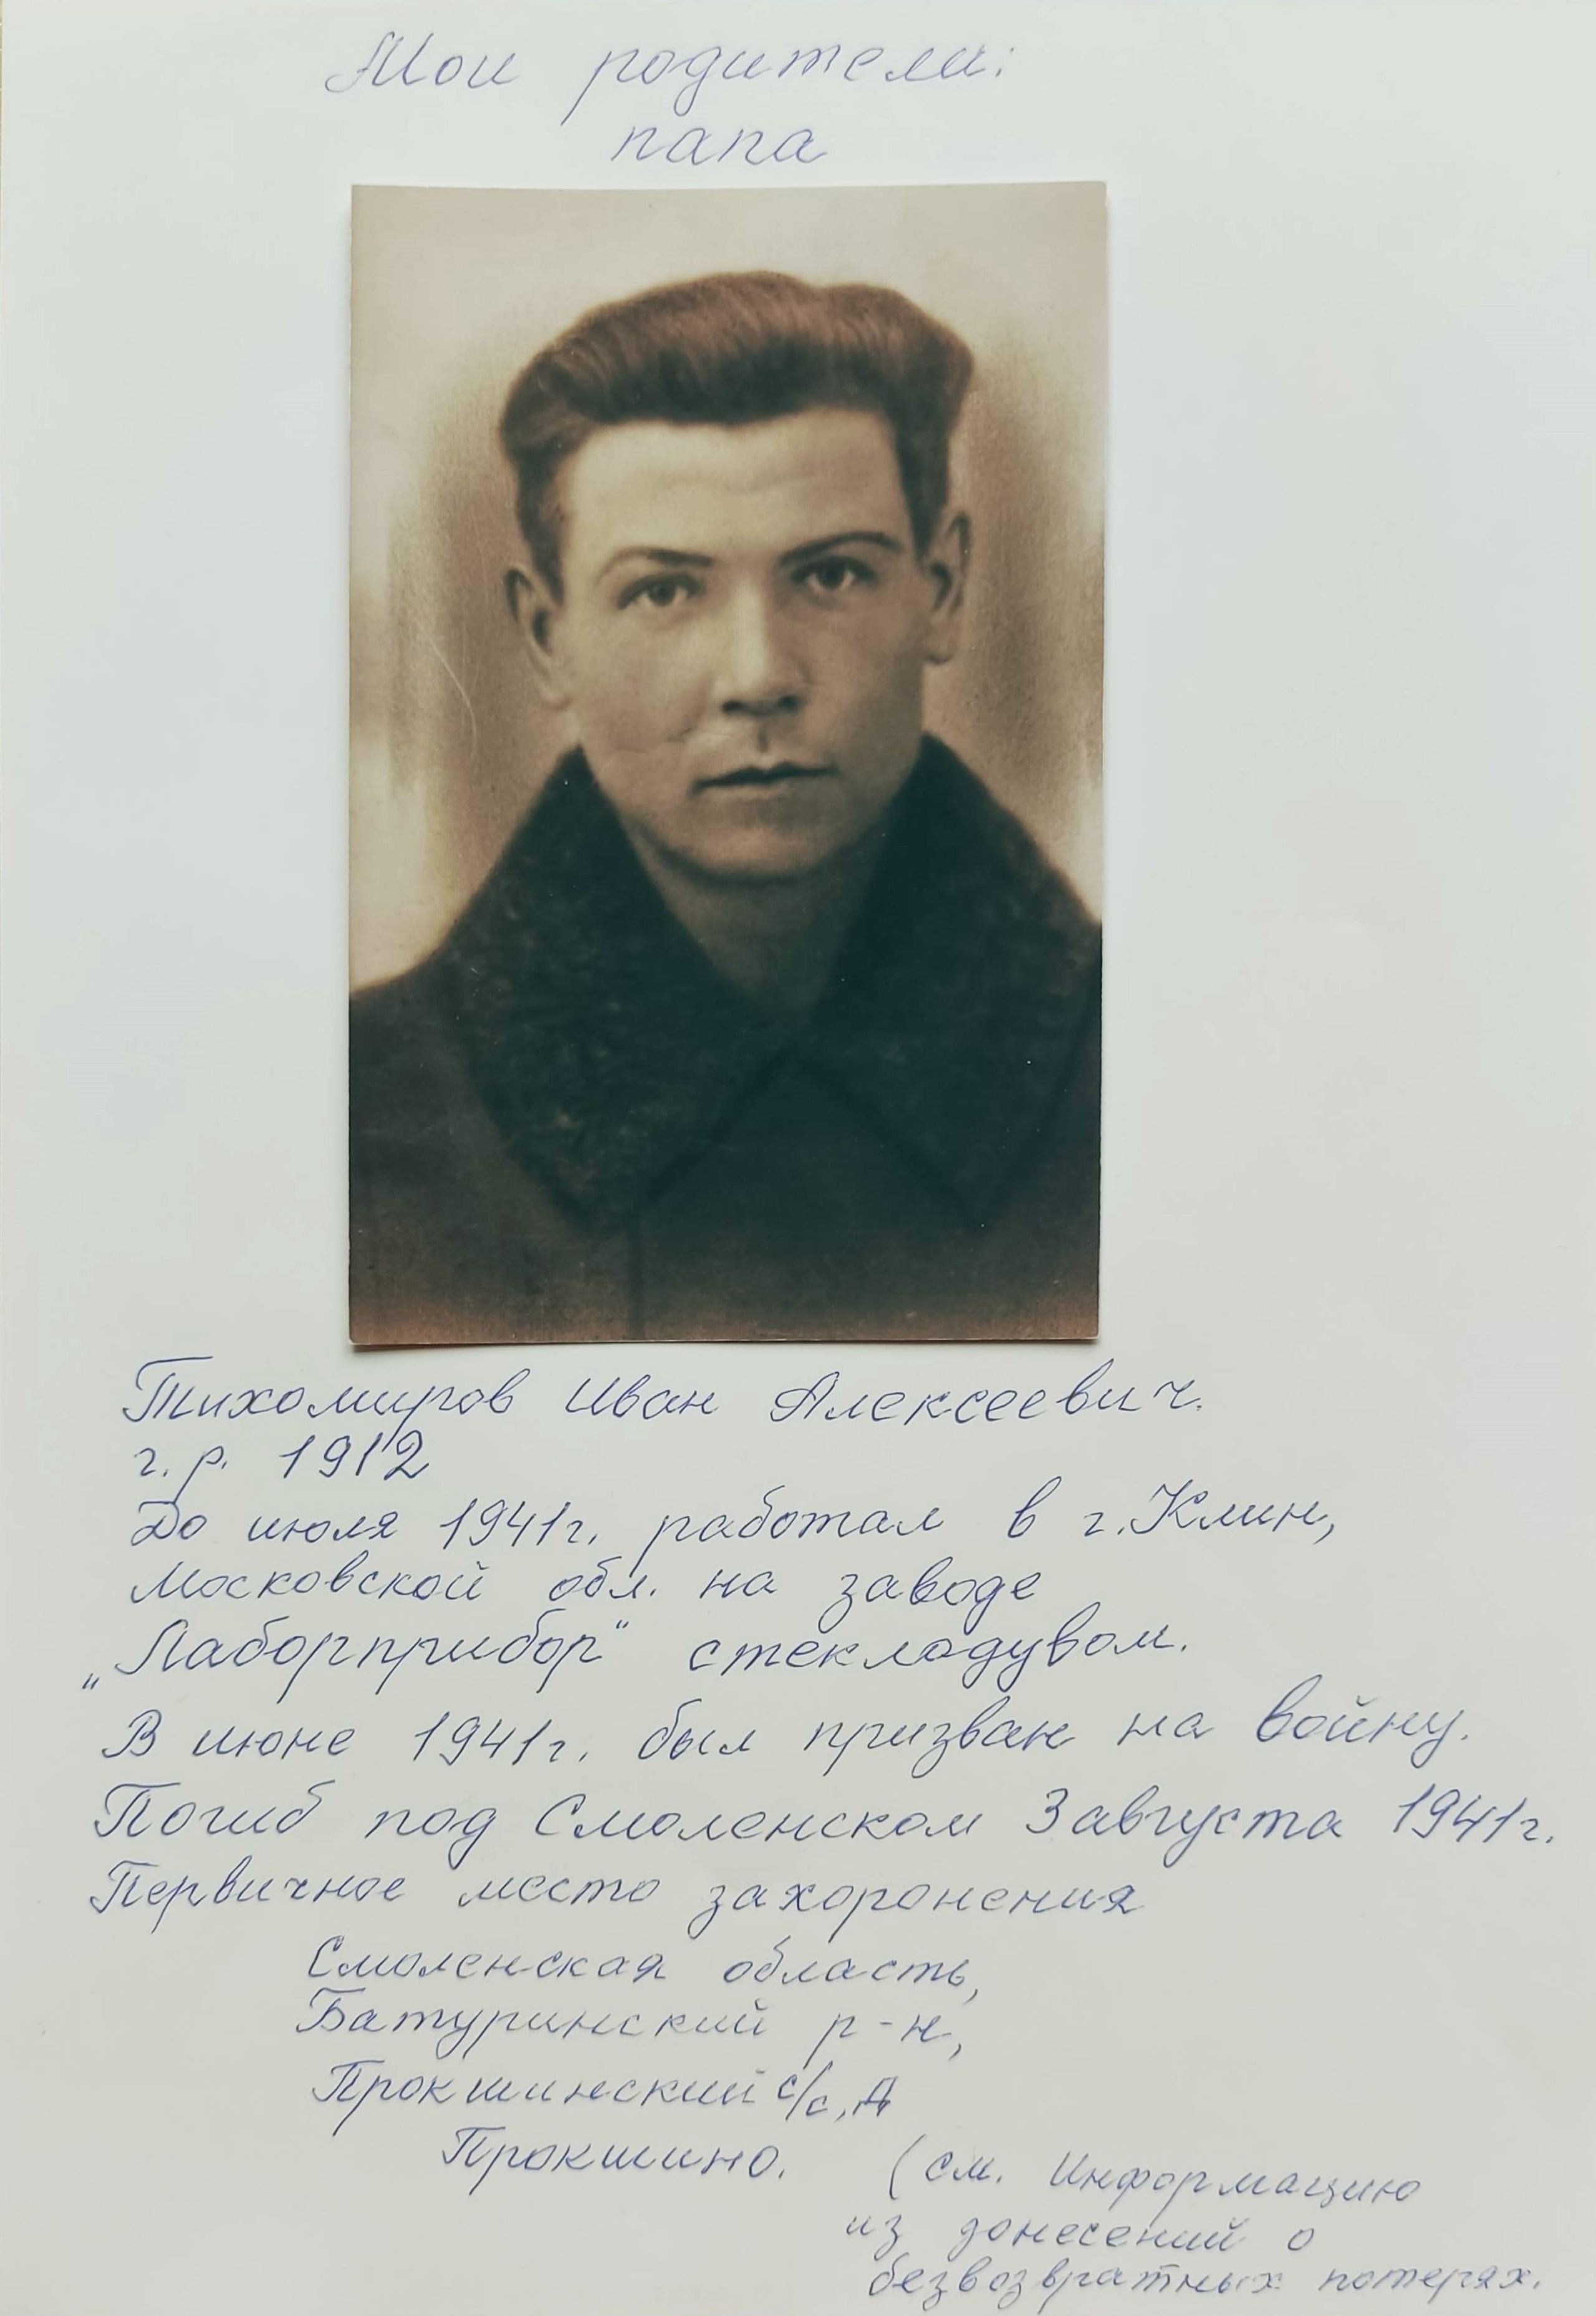 Мои родители:
папа
Тихомиров Иван Алексеевич.
г.р. 1912
До июля 1941г. работал в г.Клин,
Московской обл. на заводе
„Лаборприбор“ стеклодувом.
В июне 1941г. был призван на войну.
Погиб под Смоленском 3 августа 1941г.
Первичное место захоронения
Смоленская область,
Батуринский р-н,
Прокшинский с/с, д
Прокшино.
(см. Информацию
из донесений о
безвозвратных потерях.